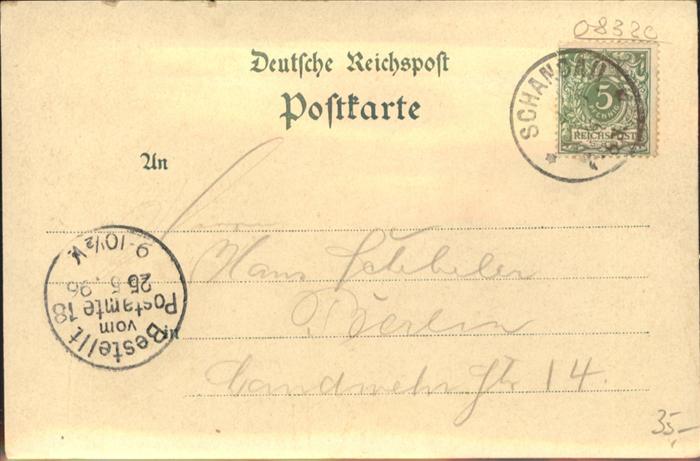 08320
Deutsche Reichspost
Postkarte
SCHANDAU
5
REICHSPOST
An
Herrn
Hans
Berlin
in
Landwehr Str 14.
Bestellt
vom
Postamte 18
25 5. 96
9-10½V.
35,-